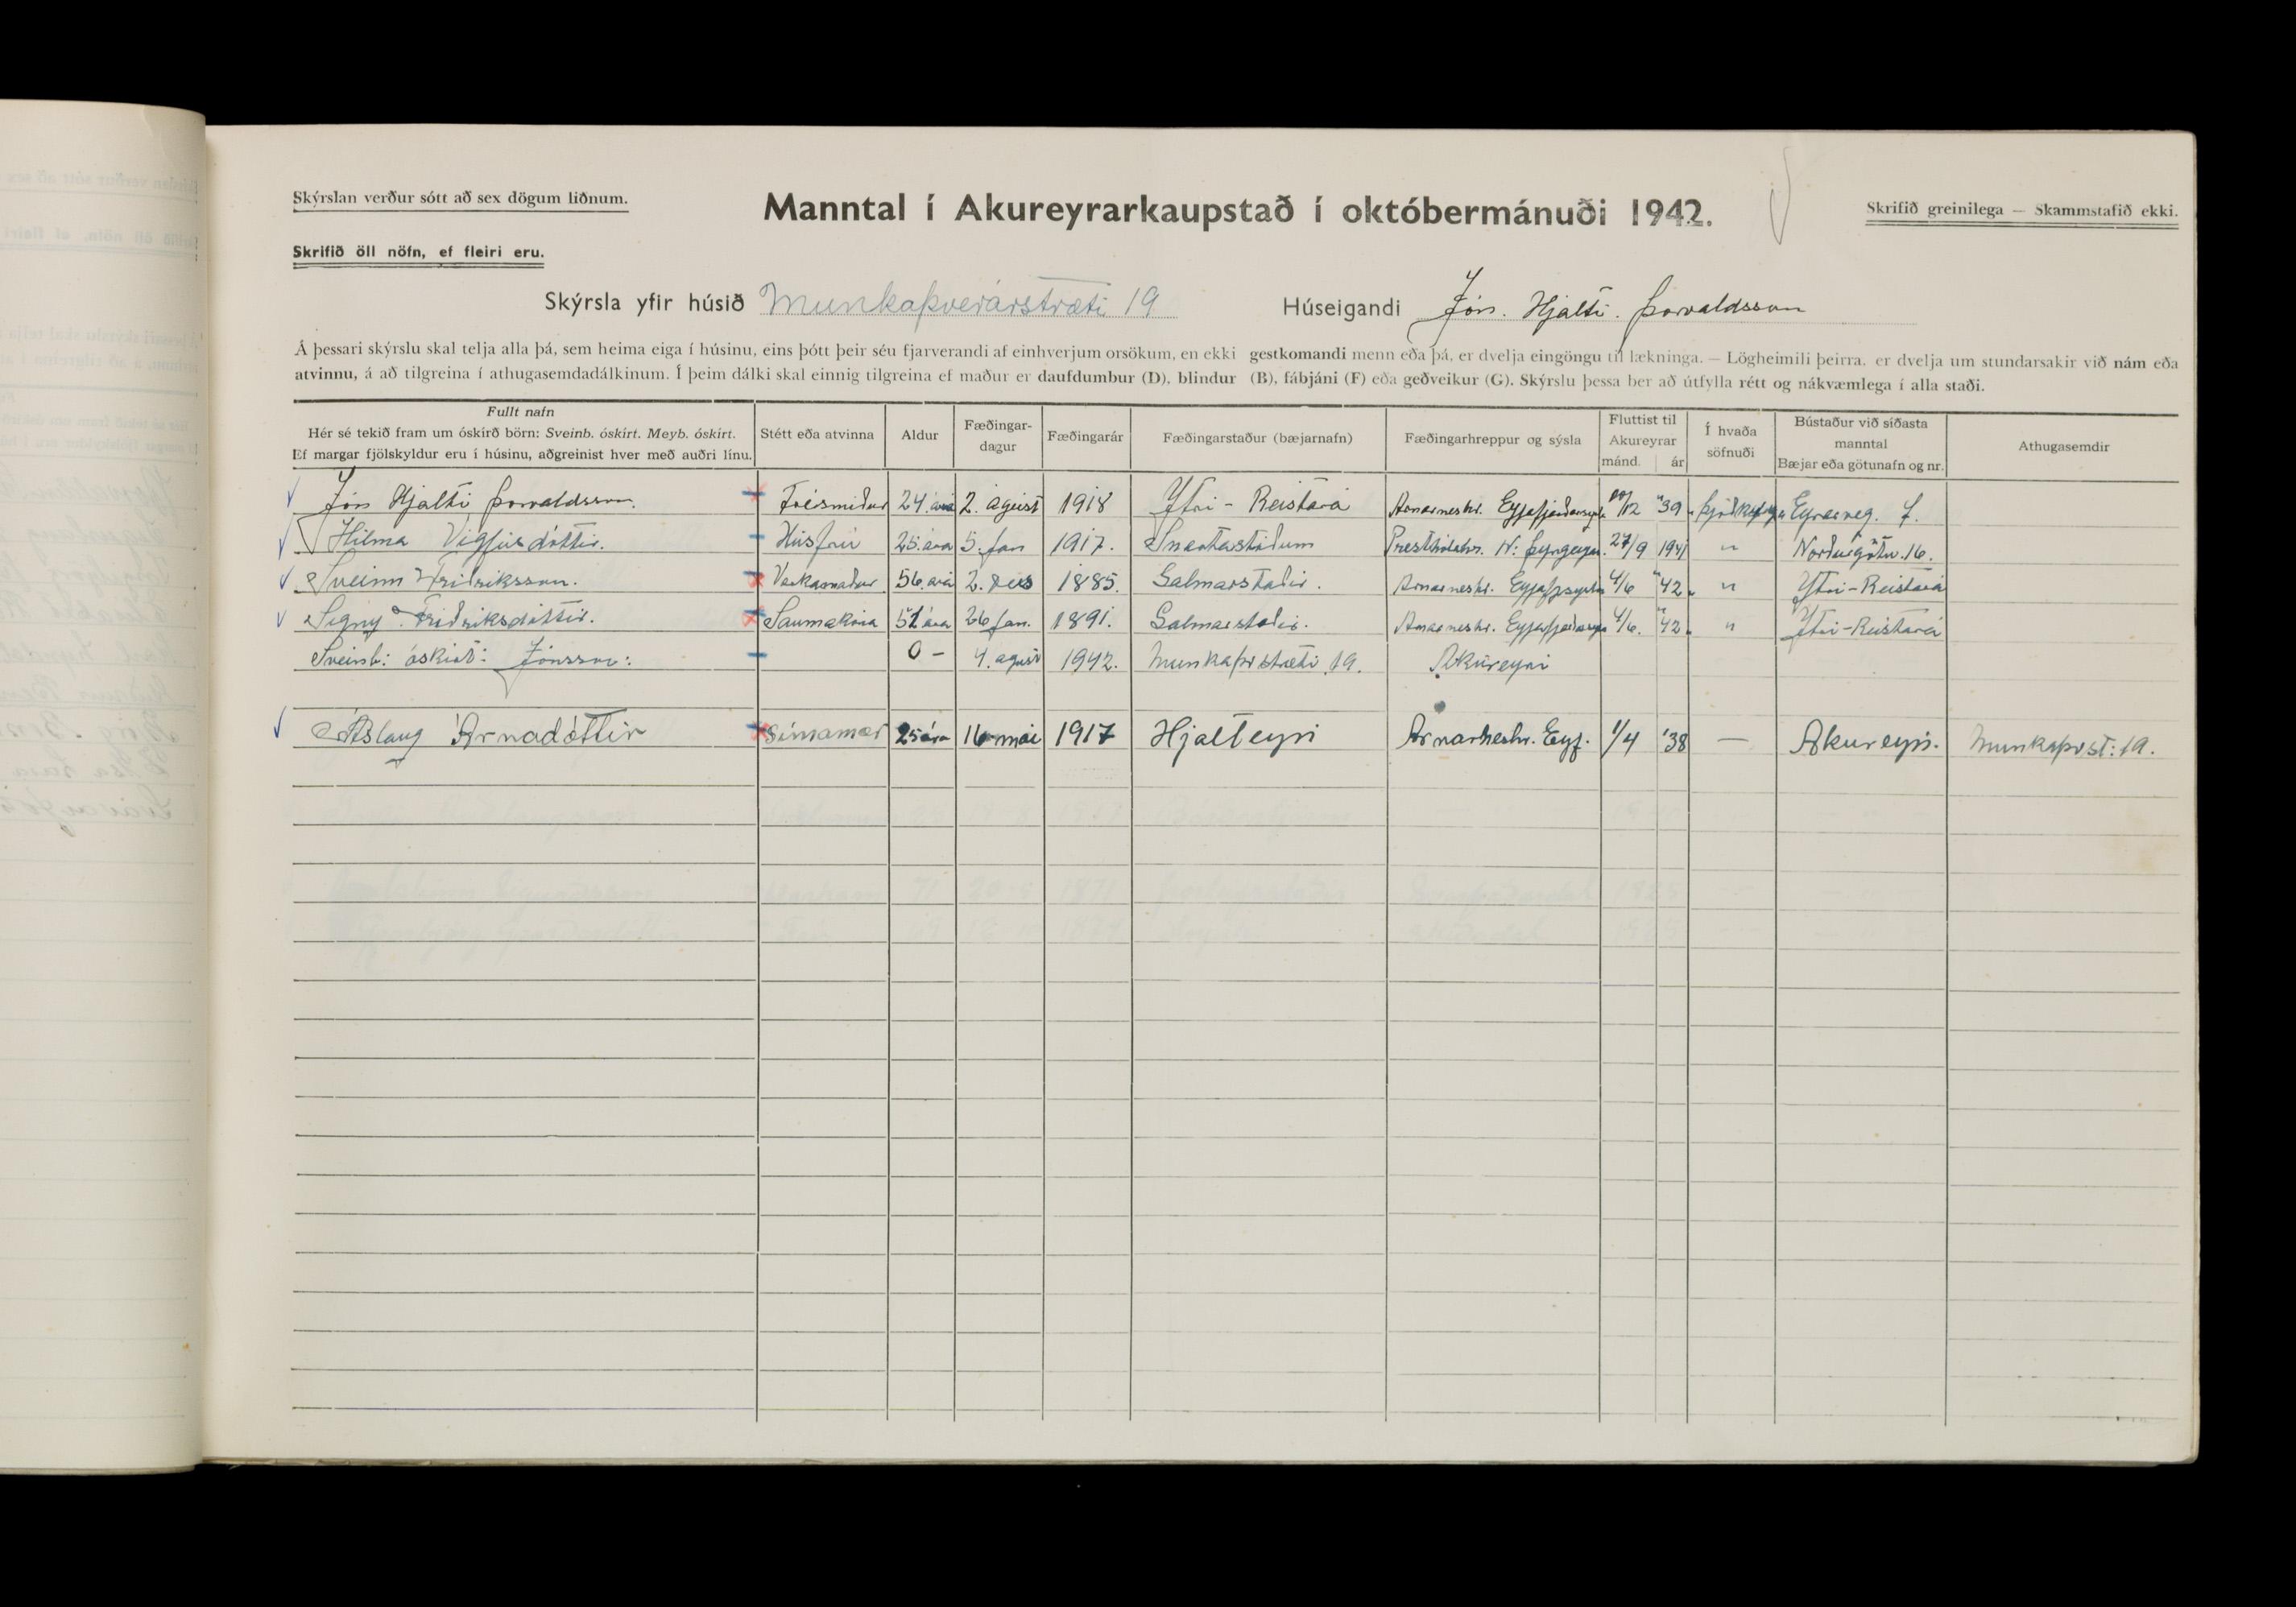 Skýrslan verður sótt að sex dögum liðnum.
Manntal í Akureyrarkaupstað í októbermánuði 1942.
Skrifið greinilega — Skammstafið ekki.
Skrifið öll nöfn, ef fleiri eru.
Skýrsla yfir húsið Munkaþverárstræti 19 Húseigandi Jón. Hjalti. Þorvaldsson
Á þessari skýrslu skal telja alla þá, sem heima eiga í húsinu, eins þótt þeir séu fjarverandi af einhverjum orsökum, en ekki gestkomandi menn eða þá, er dvelja eingöngu til lækninga. — Lögheimili þeirra, er dvelja um stundarsakir við nám eða
atvinnu, á að tilgreina í athugasemdadálkinum. Í þeim dálki skal einnig tilgreina ef maður er daufdumbur (D), blindur (B), fábjáni (F) eða geðveikur (G). Skýrslu þessa ber að útfylla rétt og nákvæmlega í alla staði.
Fullt nafn
Hér sé tekið fram um óskírð börn: Sveinb. óskírt. Meyb. óskírt.
Ef margar fjölskyldur eru í húsinu, aðgreinist hver með auðri línu.
Stétt eða atvinna
Aldur
Fæðingar-
dagur
Fæðingarár
Fæðingarstaður (bæjarnafn)
Fæðingarhreppur og sýsla
Fluttist til
Akureyrar
mánd. ár
Í hvaða
söfnuði
Bústaður við síðasta
manntal
Bæjar eða götunafn og nr.
Athugasemdir
Jón Hjalti Þorvaldsson. Trésmiður 24. ára 2. ágúst 1918 Ytri - Reistará Arnarneshr. /12 "39 Eyrarveg. 7.
Hilma Vigfúsdóttir. Húsfrú 25. ára 5. jan 1917. Snartastöðum 27/9 1941 " Norðurgötu. 16.
Sveinn Friðriksson. Verkamaður 56. ára 2. des 1885. Galmarstaðir. Arnarneshr. 4/6 "42 " Ytri-Reistará
Signý Friðriksdóttir. Saumakona 51 ára 26 jan. 1891. Galmarstaðir. Arnarneshr. 4/6. "42. " Ytri-Reistará
Sveinb: óskírt: Jónsson: 0 - 4. agust 1942. Munkaþvstræti 19. Akureyri
Áslaug Árnadóttir Símamær 25 ára 16 mai 1917 Hjalteyri Arnarneshr. Eyf. 1/4 '38 — Akureyri. Munkaþvst: 19.